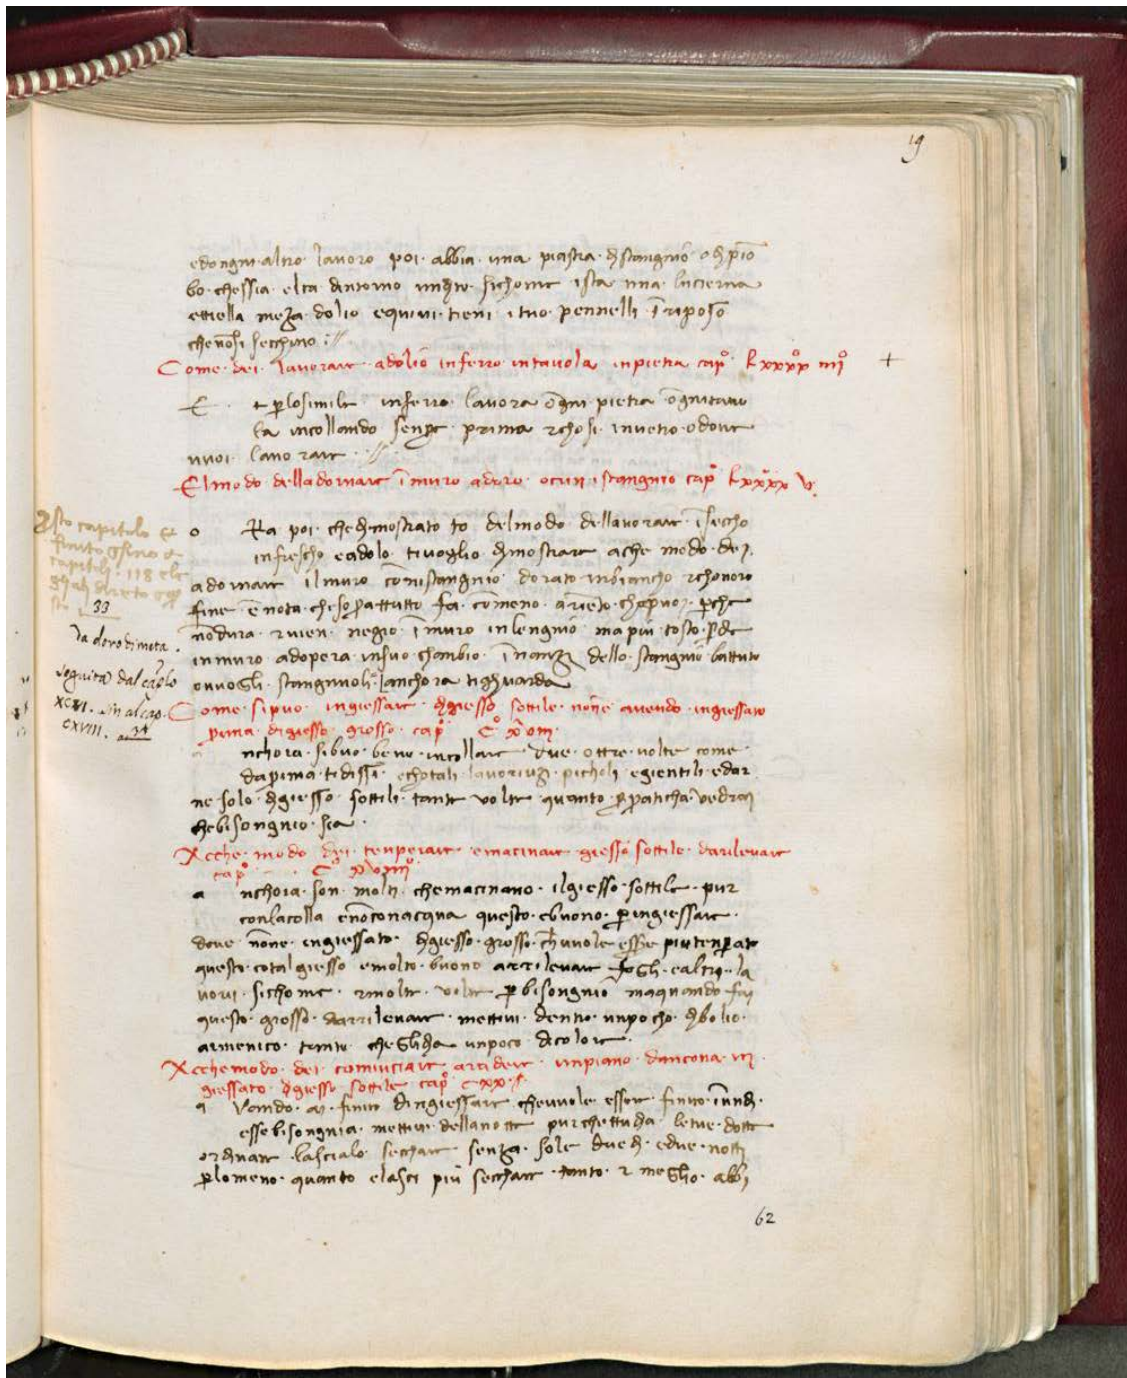 19
edongni altro lavoro poi abbia una piastra di stangnio o di pio
bo chessia alta dintorno un dito sichome ista una lucierna
ettiella meza dolio equivi tieni i tuo pennelli in riposo
che nosi secchino
Come dei lavorare adolio inferro intavola inpietra capo lxxxx iiijo
E
t perlosimile inferro lavora ongni pietra ongnitavo
la incollando senpre prima e chosi invetro o dove
vuoi lavorare
El modo delladornare in muro adoro ocon istangnio capo lxxxx v
o Ra poi che dimostrato to delmodo dellavorare insecho
infrescho e adolo ti voglio dimostrare ache modo dei
adornare il muro con istangnio dorato in biancho e chonoro
fine e nota che sopra ttutto fa comeno ariento che puoi perche
nodura e vien negro in muro in lengnio ma piu tosto perde
inmuro adopera insuo chambio innanzi dello stangnio battuto
ovvogli stangniuoli anchora ti ghuarda
Questo capitulo e
finito
capitoli 118
33
da doro di meta
seguita dal caplo
XCVI. sin al cap.
CXVIII. a 34
Come si puo ingiessare di giesso sottile none avendo ingiessato
prima di giesso grosso capo C xviij
a nchora si buo bene incollare due ottre volte come
da prima ti dissi echotali lavoriuzi picholi egientili e dar
ne solo di giesso sottili tante volte quanto per praticha vedrai
chebisongnio sia
Acche modo dei tenperare emacinare giesso sottile darilevare
capo C xviiij
a nchora son molti chemacinano il giesso sottile pur
conlacolla e no con acqua questo ebuono per ingiessare
dove none ingiessato di giesso grosso che vuole essere piu tenperato
questo cotal giesso emolto buono arrilevare fogli e altri la
vori sichome emolte volte per bisongnio ma quando fai
questo grosso darrilevare mettivi dentro unpocho di bolio
armenico tanto che gli dia unpoco di colore
Acche modo dei cominciare a radere un piano dancona in
giessato di giesso sottile capo C xx
q Vando ai finito dingiessare che vuole esser finito in un di
esse bisongnia mettivi dellanotte pur chettu dia le tue dotte
ordinate lascialo seccare senza sole due di e due notti
perlomeno quanto elasci piu secchare tanto e meglio abbi
62